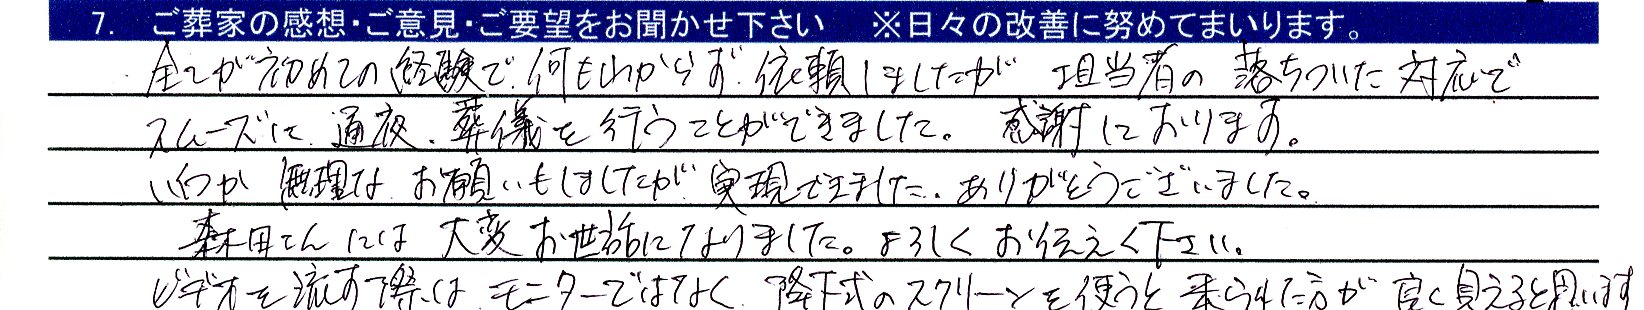 7. ご葬家の感想・ご意見・ご要望をお聞かせ下さい ※日々の改善に努めてまいります。
全てが初めての経験で何もわからず、依頼しましたが 担当者の落ちついた対応で
スムーズに通夜、葬儀を行うことができました。 感謝しております。
いくつか無理なお願いもしましたが実現できました。ありがとうございました。
森田さんには大変お世話になりました。よろしくお伝え下さい。
ビデオを流す際は、モニターではなく、降下式のスクリーンを使うと来られた方が良く見えると思います